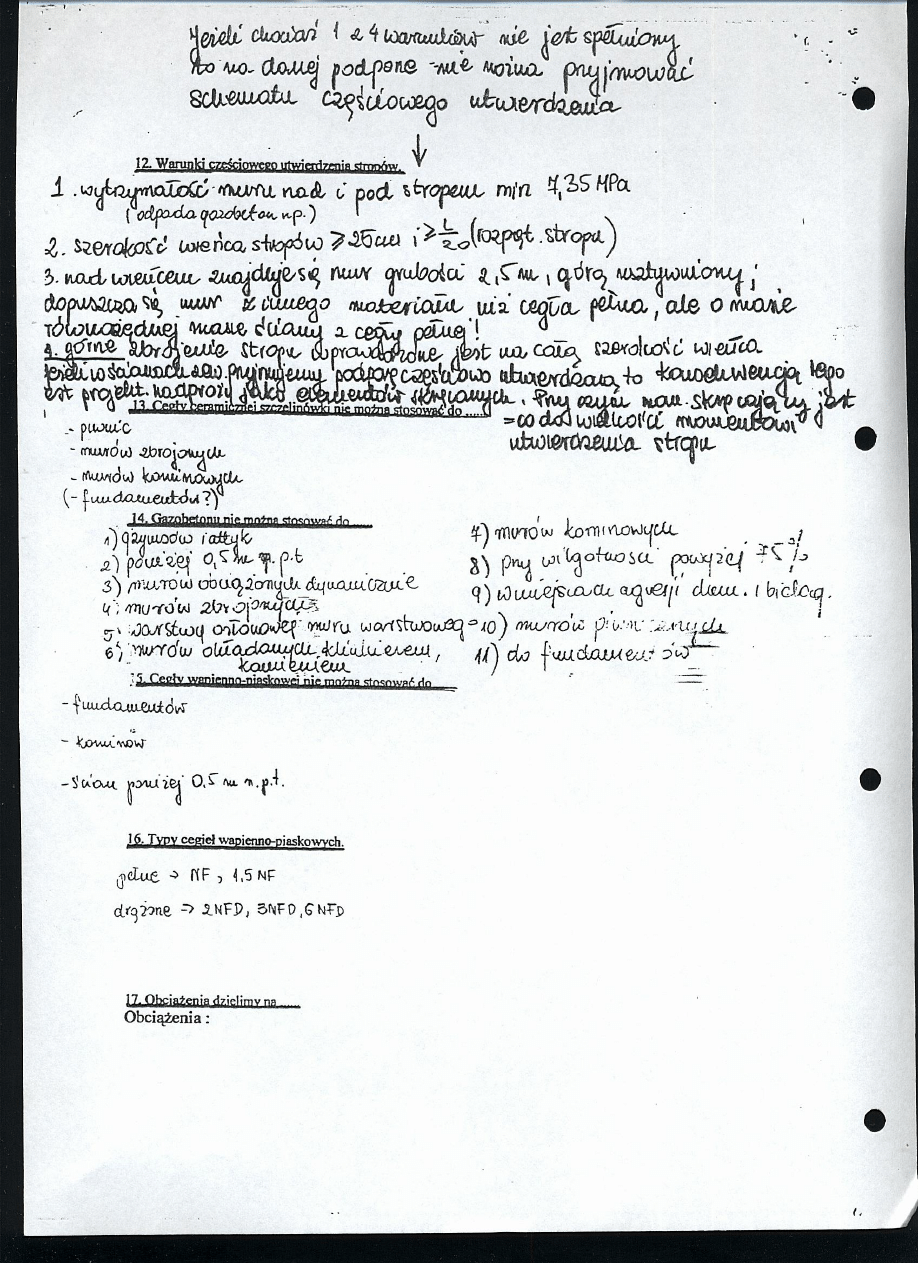 Jeżeli chociaż 1 z 4 warunków nie jest spełniony
to na danej podporze nie można przyjmować
schematu częściowego utwierdzenia
↓
12. Warunki częściowego utwierdzenia stropów.
1. wytrzymałość muru nad i pod stropem min 7,35 MPa
(odpada gazobeton np.)
2. szerokość wieńca stropów ≥ 25cm i ≥ L/20 (rozpęt. stropu)
3. nad wieńcem znajduje się mur grubości 2,5m, górą usztywniony;
dopuszcza się mur z innego materiału niż cegła pełna, ale o masie
równorzędnej masie ściany z cegły pełnej!
4. górne zbrojenie stropu doprowadzone jest na całą szerokość wieńca
Jeżeli w ścianach zew. przyjmujemy podporę częściowo utwierdzoną to konsekwencją tego
jest projekt. nadproży jako elementów skręcanych. Przy czym mom. skręcający jest
13. Cegły ceramicznej szczelinówki nie można stosować do ......
= co do wielkości momentowi
utwierdzenia stropu
- piwnic
- murów zbrojonych
- murów kominowych
(- fundamentów?)
14. Gazobetonu nie można stosować do
1) gzymsów i attyk
2) poniżej 0,5m n.p.t
3) murów obciążonych dynamicznie
4) murów zbrojonych
5) warstwy osłonowej muru warstwoweg
6) murów okładanych klinkierem,
kamieniem
7) murów kominowych
8) przy wilgotności powyżej 75%
9) w miejscach agresji chem. i biolog.
10) murów piwnicznych
11) do fundamentów
15. Cegły wapienno-piaskowej nie można stosować do
- fundamentów
- kominów
- ścian poniżej 0.5m n.p.t.
16. Typy cegieł wapienno-piaskowych.
pełne → NF, 1,5 NF
drążone ⇒ 2NFD, 3NFD, 6NFD
17. Obciążenia dzielimy na ......
Obciążenia :